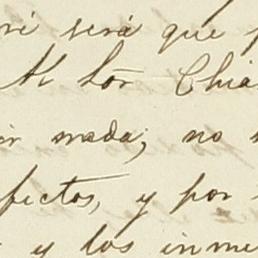 ré será que
Al Sor Chia
ir nada; no
fectos, y por
y los inme